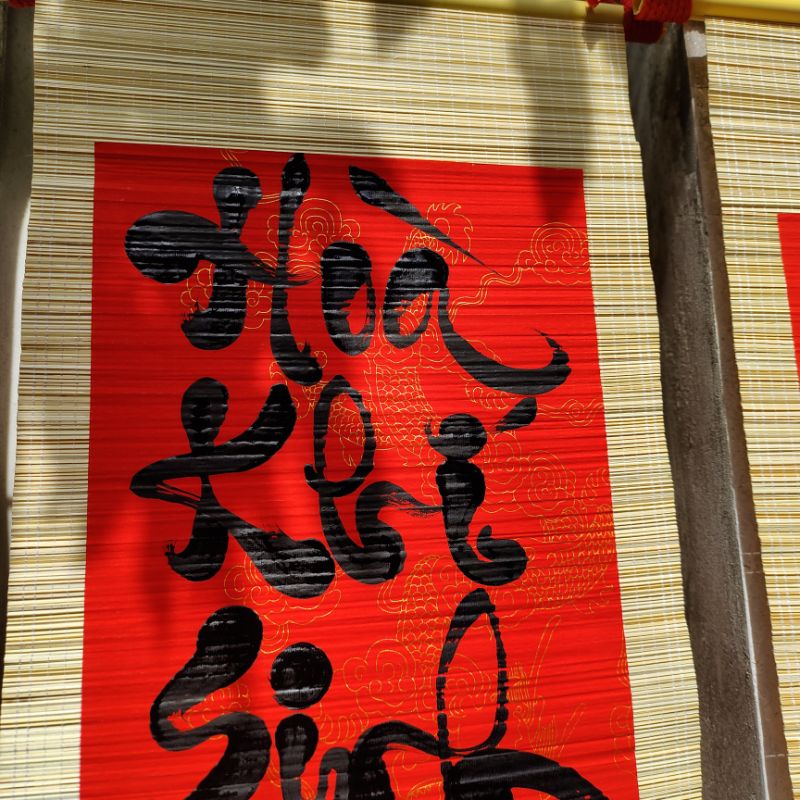 Hoà
Khí
Sinh